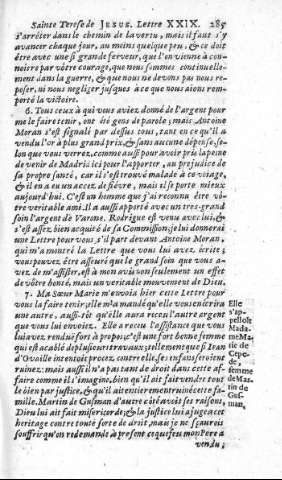 Sainte Terese de JESUS. Lettre XXIX. 285
s'arréter dans le chemin de la vertu, mais il faut s'y
avancer chaque jour, au moins quelque peu, & ce doit
être avec une si grande ferveur, que l'on vienne à con-
noistre par vôtre courage, que nous sommes continuelle-
ment dans la guerre, & que nous ne devons pas nous re-
poser, ni nous negliger jusques à ce que nous aions rem-
porté la victoire.
6. Tous ceux à qui vous aviez donné de l'argent pour
me le faire tenir, ont été gens de parole; mais Antoine
Moran s'est signalé par dessus tous, tant en ce qu'il a
vendu l'or à plus grand prix, & sans aucune dépense, se-
lon que vous verrez, comme aussi pour avoir pris la peine
de venir de Madrid ici pour l'apporter, au prejudice de
sa propre santé, car il s'est trouvé malade à ce voiage,
& il en a eu un accez de fiévre, mais il se porte mieux
aujourd'hui. C'est un homme que j'ai reconnu être vô-
tre veritable ami. Il a aussi apporté avec un tres-grand
soin l'argent de Varone. Rodrigue est venu avec lui, &
s'est assez bien acquité de sa Commission; je lui donnerai
une Lettre pour vous, s'il part devant Antoine Moran,
qui m'a montré la Lettre que vous lui avez écrite;
vous pouvez être asseuré que le grand soin que vous a-
vez de m'assister, est à mon avis non seulement un effet
de vôtre bonté, mais un veritable mouvement de Dieu.
7. Ma Sœur Marie m'envoia hier cette Lettre pour
vous la faire tenir; elle m'a mandé qu'elle vous en écrira
une autre, aussi-tôt qu'elle aura receu l'autre argent
que vous lui envoiez. Elle a receu l'assistance que vous
lui avez rendu fort à propos; c'est une fort bonne femme
qui est accablée de plusieurs travaux; tellement que si Jean
d'Ovaille intentoit procez contre elle, ses enfans seroient
ruinez: mais aussi il n'a pas tant de droit dans cette af-
faire comme il s'imagine, bien qu'il ait fait vendre tout
le bien par justice, & qu'il ait entierement ruiné cette fa-
mille. Martin de Gusman d'autre côté avoit ses raisons,
Dieu lui ait fait misericorde; & la justice lui ajugea cet
heritage contre toute sorte de droit, mais je ne sçaurois
souffrir qu'on redemande à present ce que feu mon Pere a
vendu;
Elle
s'ap-
pelloit
Mada-
me Ma-
rie de
Cepe-
de,
femme
de Mar-
tin de
Gus-
man,